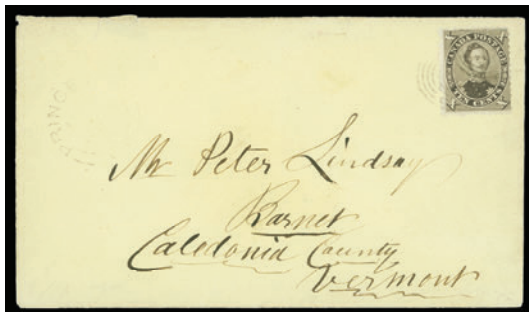 CANADA POSTAGE
TEN CENTS
Mr Peter Lindsay
Barnet
Caledonia County
Vermont